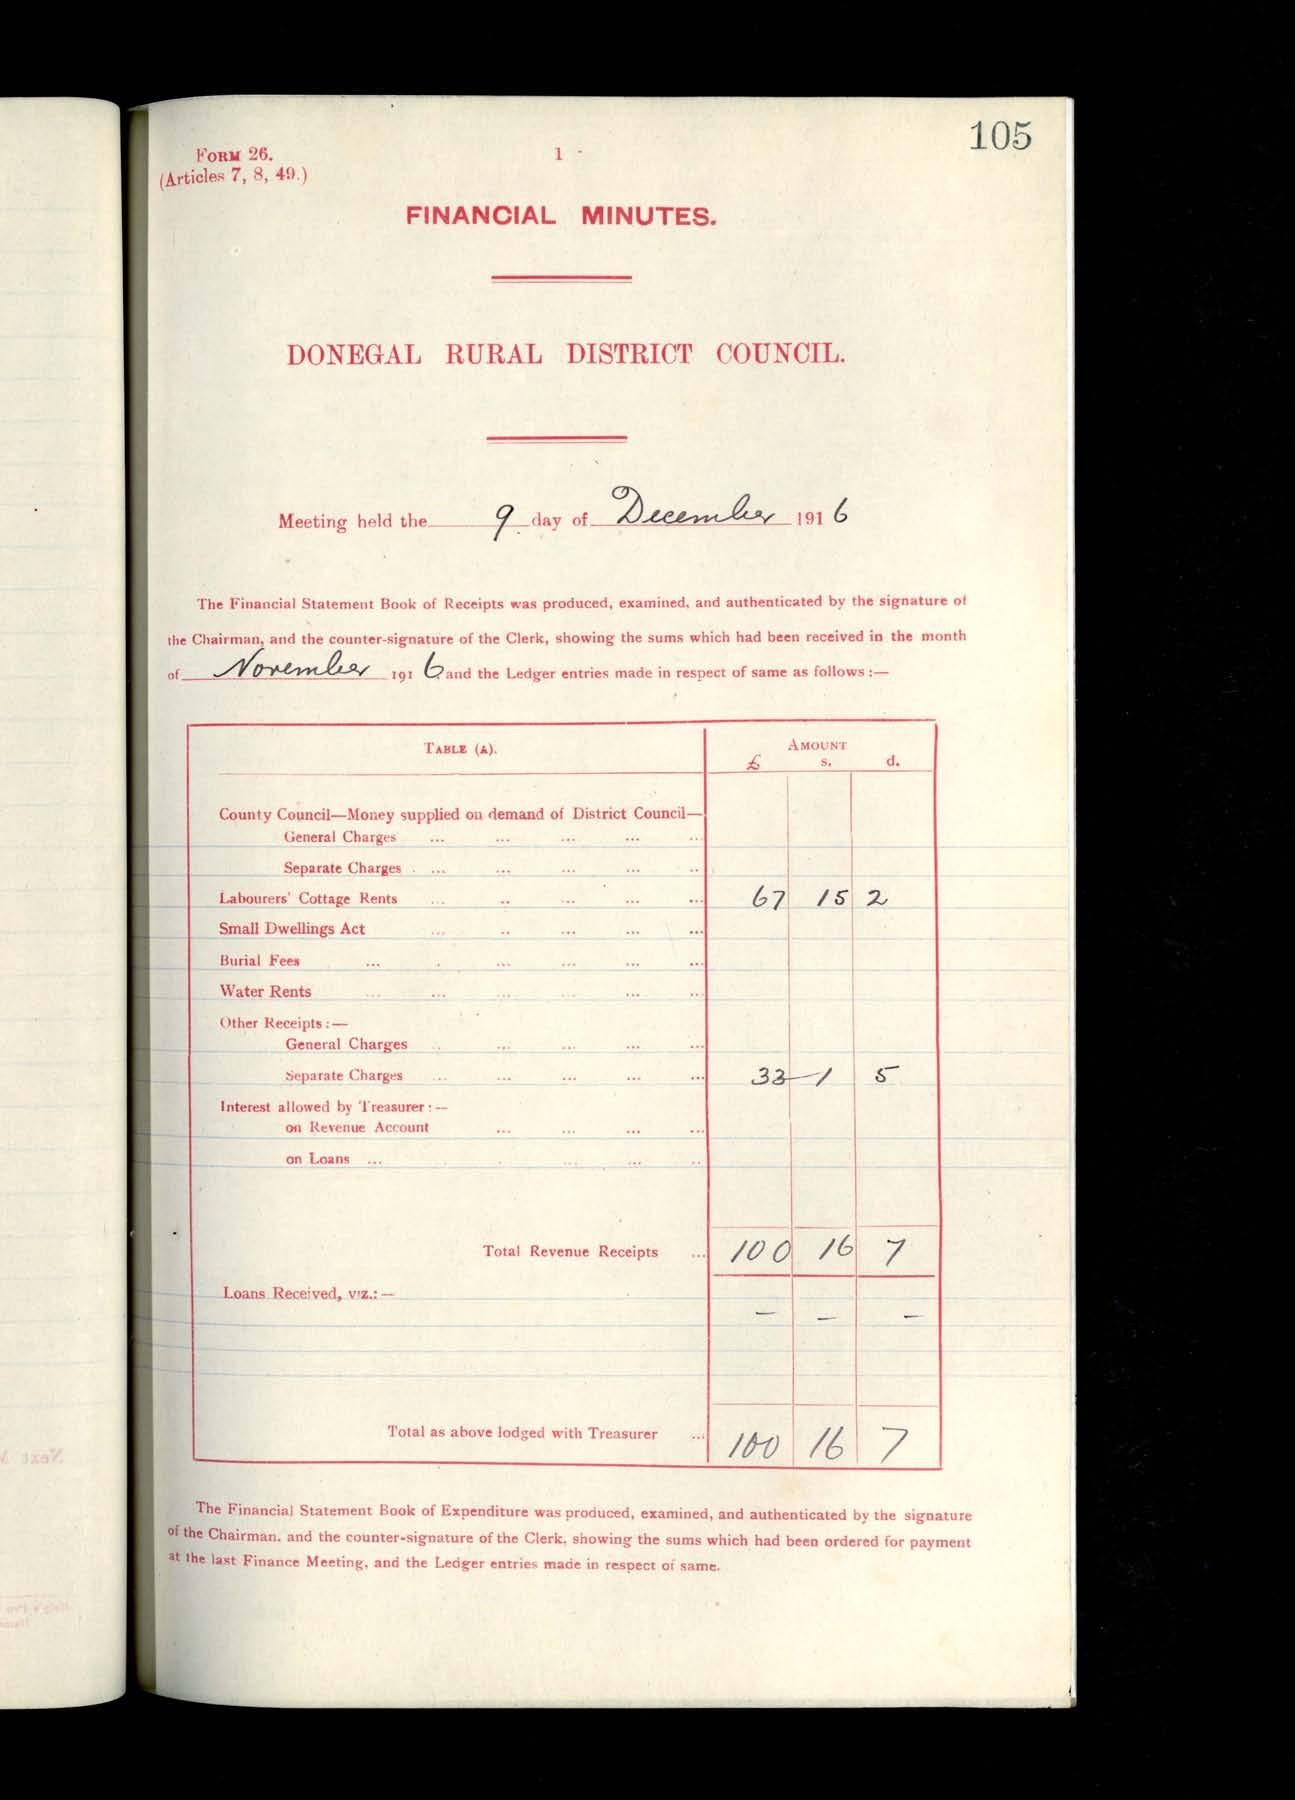 105
FORM 26.
1
(Articles 7, 8, 49.)
FINANCIAL MINUTES.
DONEGAL RURAL DISTRICT COUNCIL.
Meeting held the 9 day of December 1916
The Financial Statement Book of Receipts was produced, examined, and authenticated by the signature of
the Chairman, and the counter-signature of the Clerk, showing the sums which had been received in the month
of November 1916 and the Ledger entries made in respect of same as follows:—
TABLE (A).
AMOUNT
£ s. d.
County Council—Money supplied on demand of District Council—
General Charges ... ... ... ... ...
Separate Charges ... ... ... ... ...
Labourers' Cottage Rents ... ... ... ... ... 67 15 2
Small Dwellings Act ... ... ... ... ...
Burial Fees ... ... ... ... ...
Water Rents ... ... ... ... ... ...
Other Receipts:—
General Charges ... ... ... ... ...
Separate Charges ... ... ... ... ... 33 — 1 5
Interest allowed by Treasurer:—
on Revenue Account ... ... ... ...
on Loans ... ... ... ...
Total Revenue Receipts ... 100 16 7
Loans Received, viz.:—
— — —
Total as above lodged with Treasurer ... 100 16 7
The Financial Statement Book of Expenditure was produced, examined, and authenticated by the signature
of the Chairman. and the counter-signature of the Clerk, showing the sums which had been ordered for payment
at the last Finance Meeting, and the Ledger entries made in respect of same.